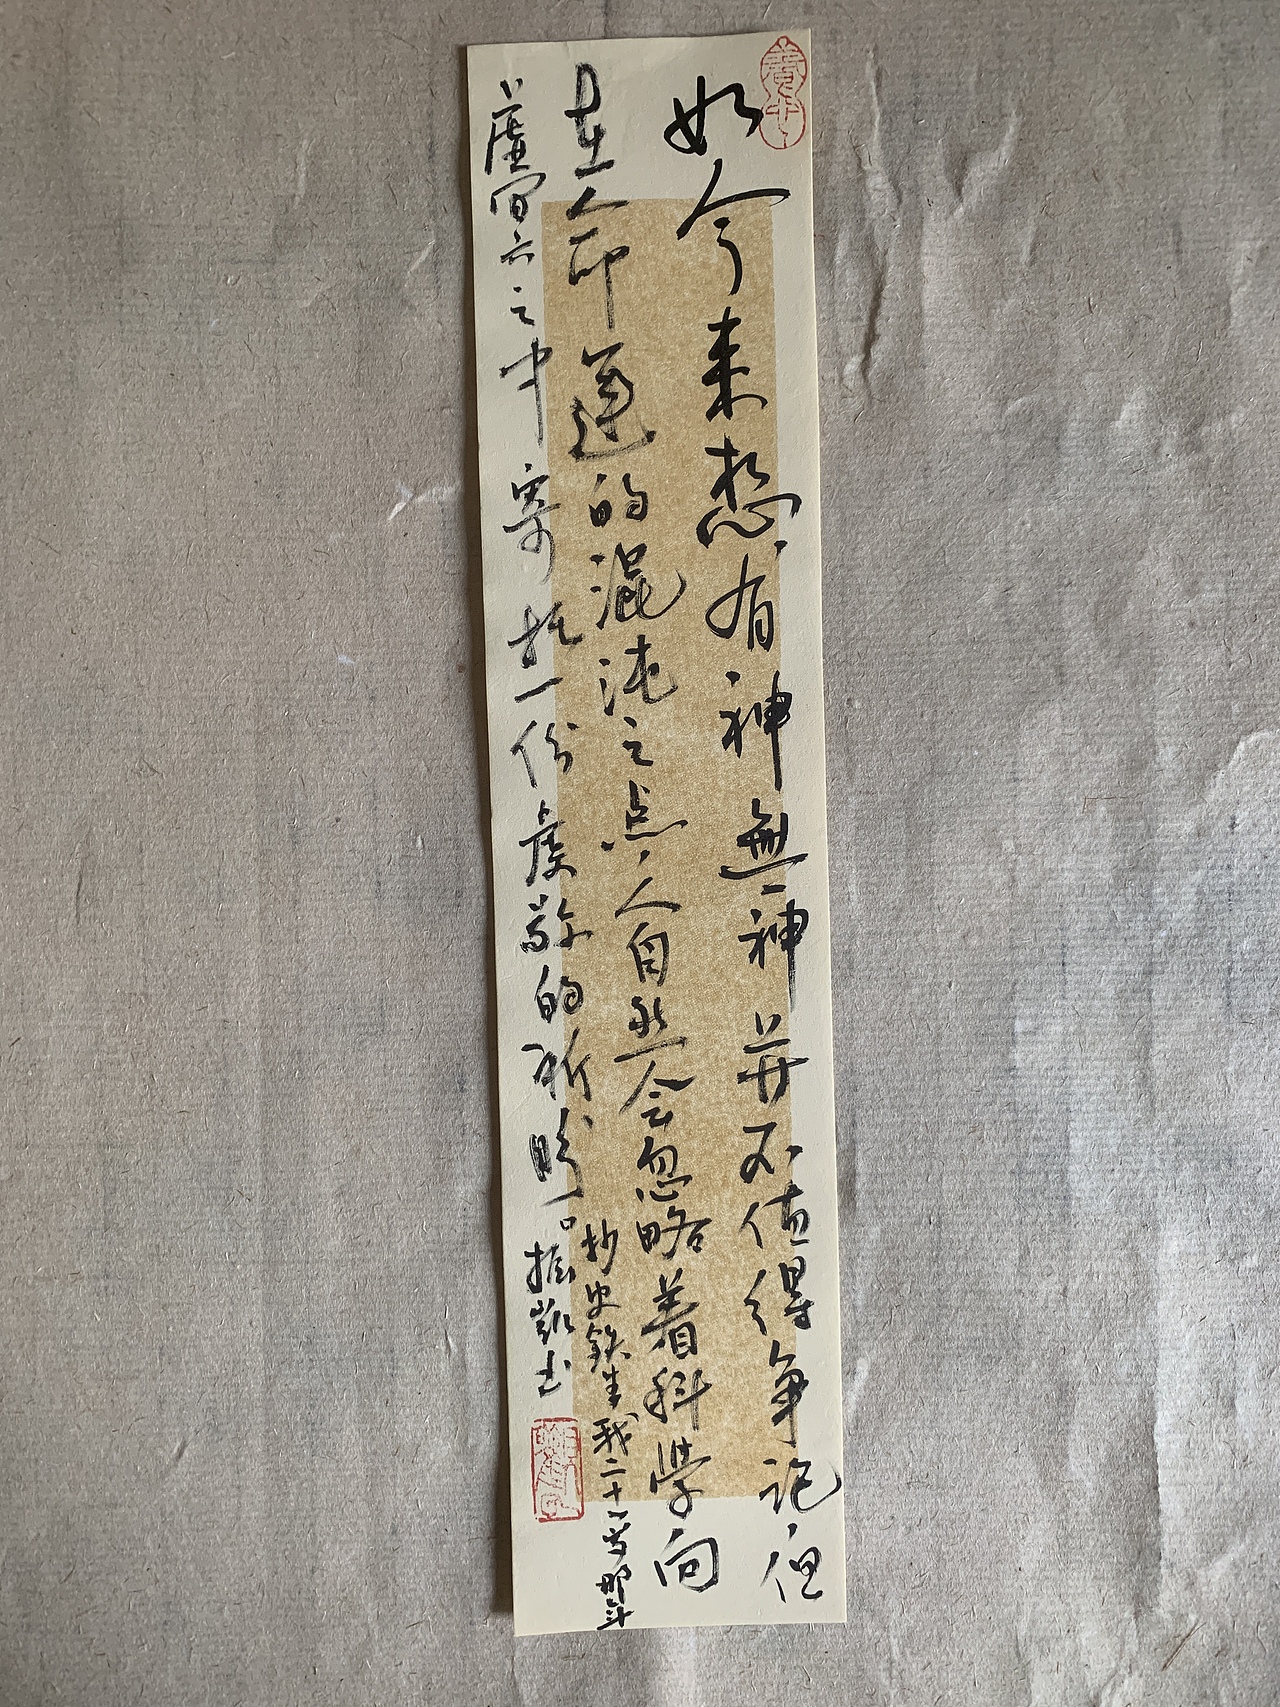 如今来想，有神無神并不值得争论，但
在命運的混沌之点，人自然会忽略着科學向
虚冥之中寄托一份虔敬的祈盼。
抄史鉄生我二十一岁那年
振凱书